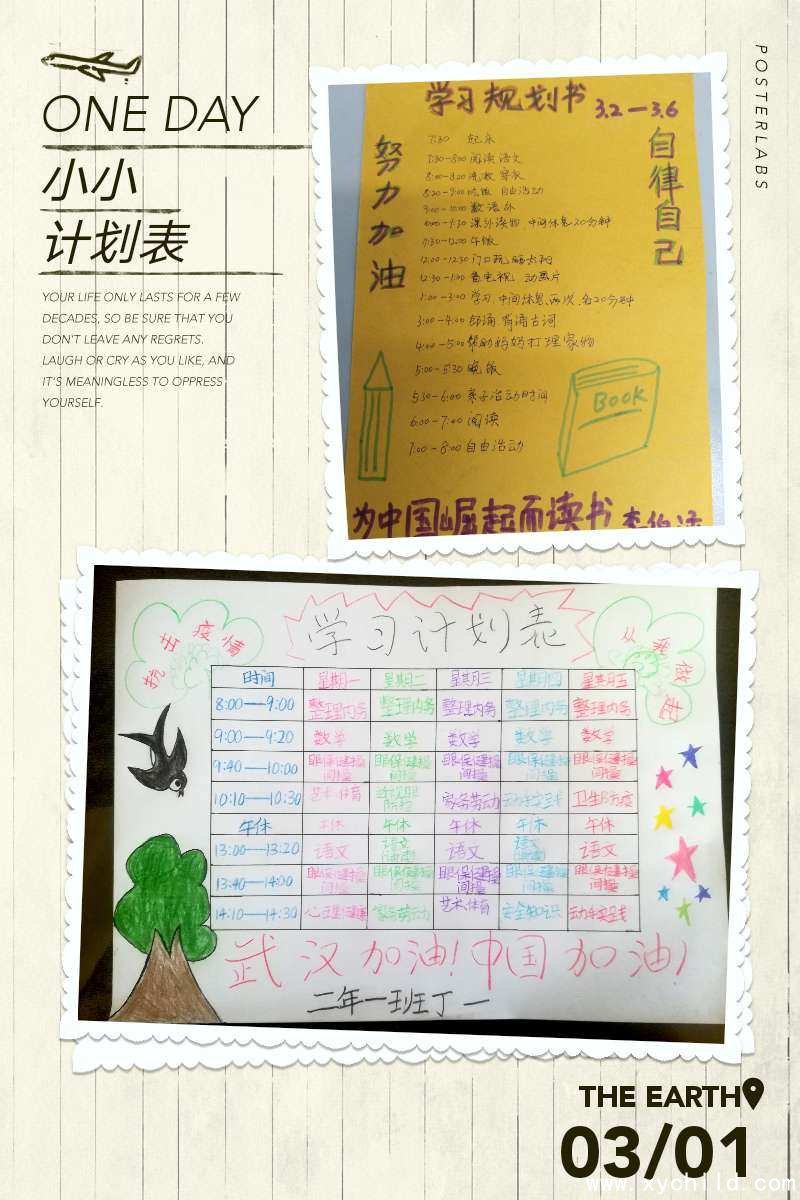 ONE DAY
小小
计划表
YOUR LIFE ONLY LASTS FOR A FEW
DECADES, SO BE SURE THAT YOU
DON'T LEAVE ANY REGRETS.
LAUGH OR CRY AS YOU LIKE, AND
IT'S MEANINGLESS TO OPPRESS
YOURSELF.
POSTERLABS
学习规划书 3.2—3.6
努力加油
自律自己
7:30 起床
7:30-8:00 阅读 语文
8:00-8:20 洗漱 穿衣
8:20-9:00 吃饭 自由活动
课外读物 中间休息20分钟
午饭
12:00-12:30
12:30-1:00 看电视 动画片
1:00-3:00 学习 中间休息两次 各20分钟
3:00-4:00 朗诵 背诵古词
4:00-5:00 帮助妈妈打理家物
5:00-5:30 晚饭
5:30-6:00 亲子活动时间
6:00-7:00 阅读
7:00-8:00 自由活动
BOOK
为中国崛起而读书
抗击疫情
学习计划表
从我做起
时间 星期一 星期二 星期三 星期四 星期五
8:00—9:00 整理内务 整理内务 整理内务 整理内务 整理内务
9:00—9:20 数学 数学 数学 数学 数学
9:40—10:00 眼保健操间操 眼保健操间操 眼保健操间操 眼保健操间操 眼保健操间操
10:10—10:30 艺术体育 家务劳动 卫生防疫
午休 午休 午休 午休 午休 午休
13:00—13:20 语文 语文 语文 语文 语文
13:40—14:00 眼保健操间操 眼保健操间操 眼保健操间操 眼保健操间操 眼保健操间操
14:10—14:30 心理健康 家务劳动 艺术体育 安全知识
武汉加油!中国加油!
二年一班丁一
THE EARTH
03/01
www.xychild.com